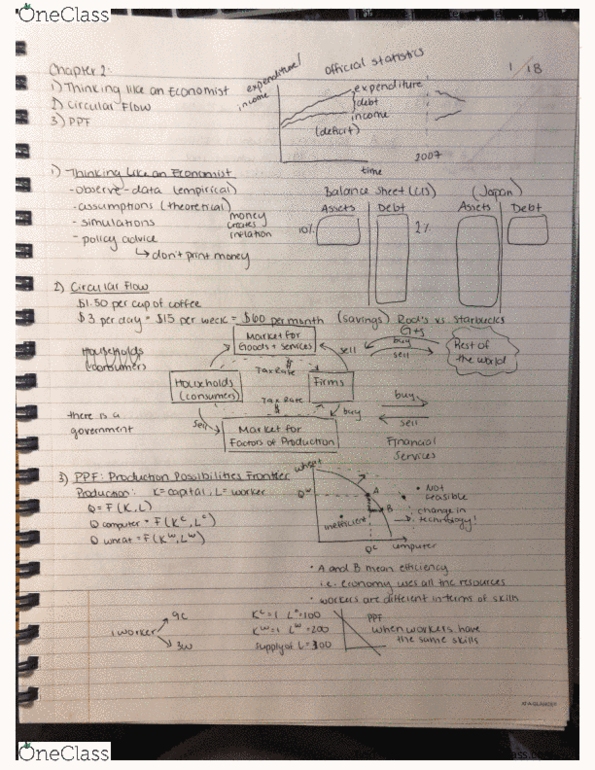 OneClass
Chapter 2: official statistics 1/18
1) Thinking like an Economist expenditure/ income expenditure
2) Circular Flow debt
3) PPF income
(deficit)
time 2007
1) Thinking Like an Economist
-observe-data (empirical) Balance Sheet (US) (Japan)
-assumptions (theoretical) Assets Debt Assets Debt
-simulations money creates inflation 10% 2%
-policy advice
↳ don't print money
2) Circular Flow
$1.50 per cup of coffee
$3 per day = $15 per week = $60 per month (savings) Rod's vs Starbucks
Market for Goods + Services sell G+S buy sell Rest of the world
Households (consumers)
Tax Rate
Households (consumers) Firms
Tax Rate buy buy
there is a government sell Market for Factors of Production sell
Financial Services
3) PPF: Production Possibilities Frontier wheat
Production: K=capital, L=worker
Q=F(K,L) Qw A • Not feasible
Q computer = F(Kc, Lc) B change in technology!
Q wheat = F(Kw, Lw) inefficient
Qc computer
• A and B mean efficiency
i.e. economy uses all the resources
• workers are different in terms of skill
1 worker 9c Kc=1 Lc=100 PPF
3w Kw=1 Lw=200 when workers have the same skills
supply of L=300
OneClass